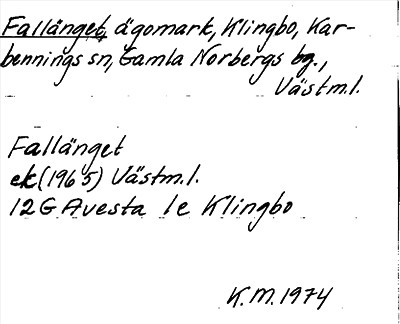 Fallänget, ägomark, Klingbo, Kar-
bennings sn, Gamla Norbergs bg.,
Västm.l.
Fallänget
ek (1965) Västm.l.
12G Avesta 1e Klingbo
K.M. 1974